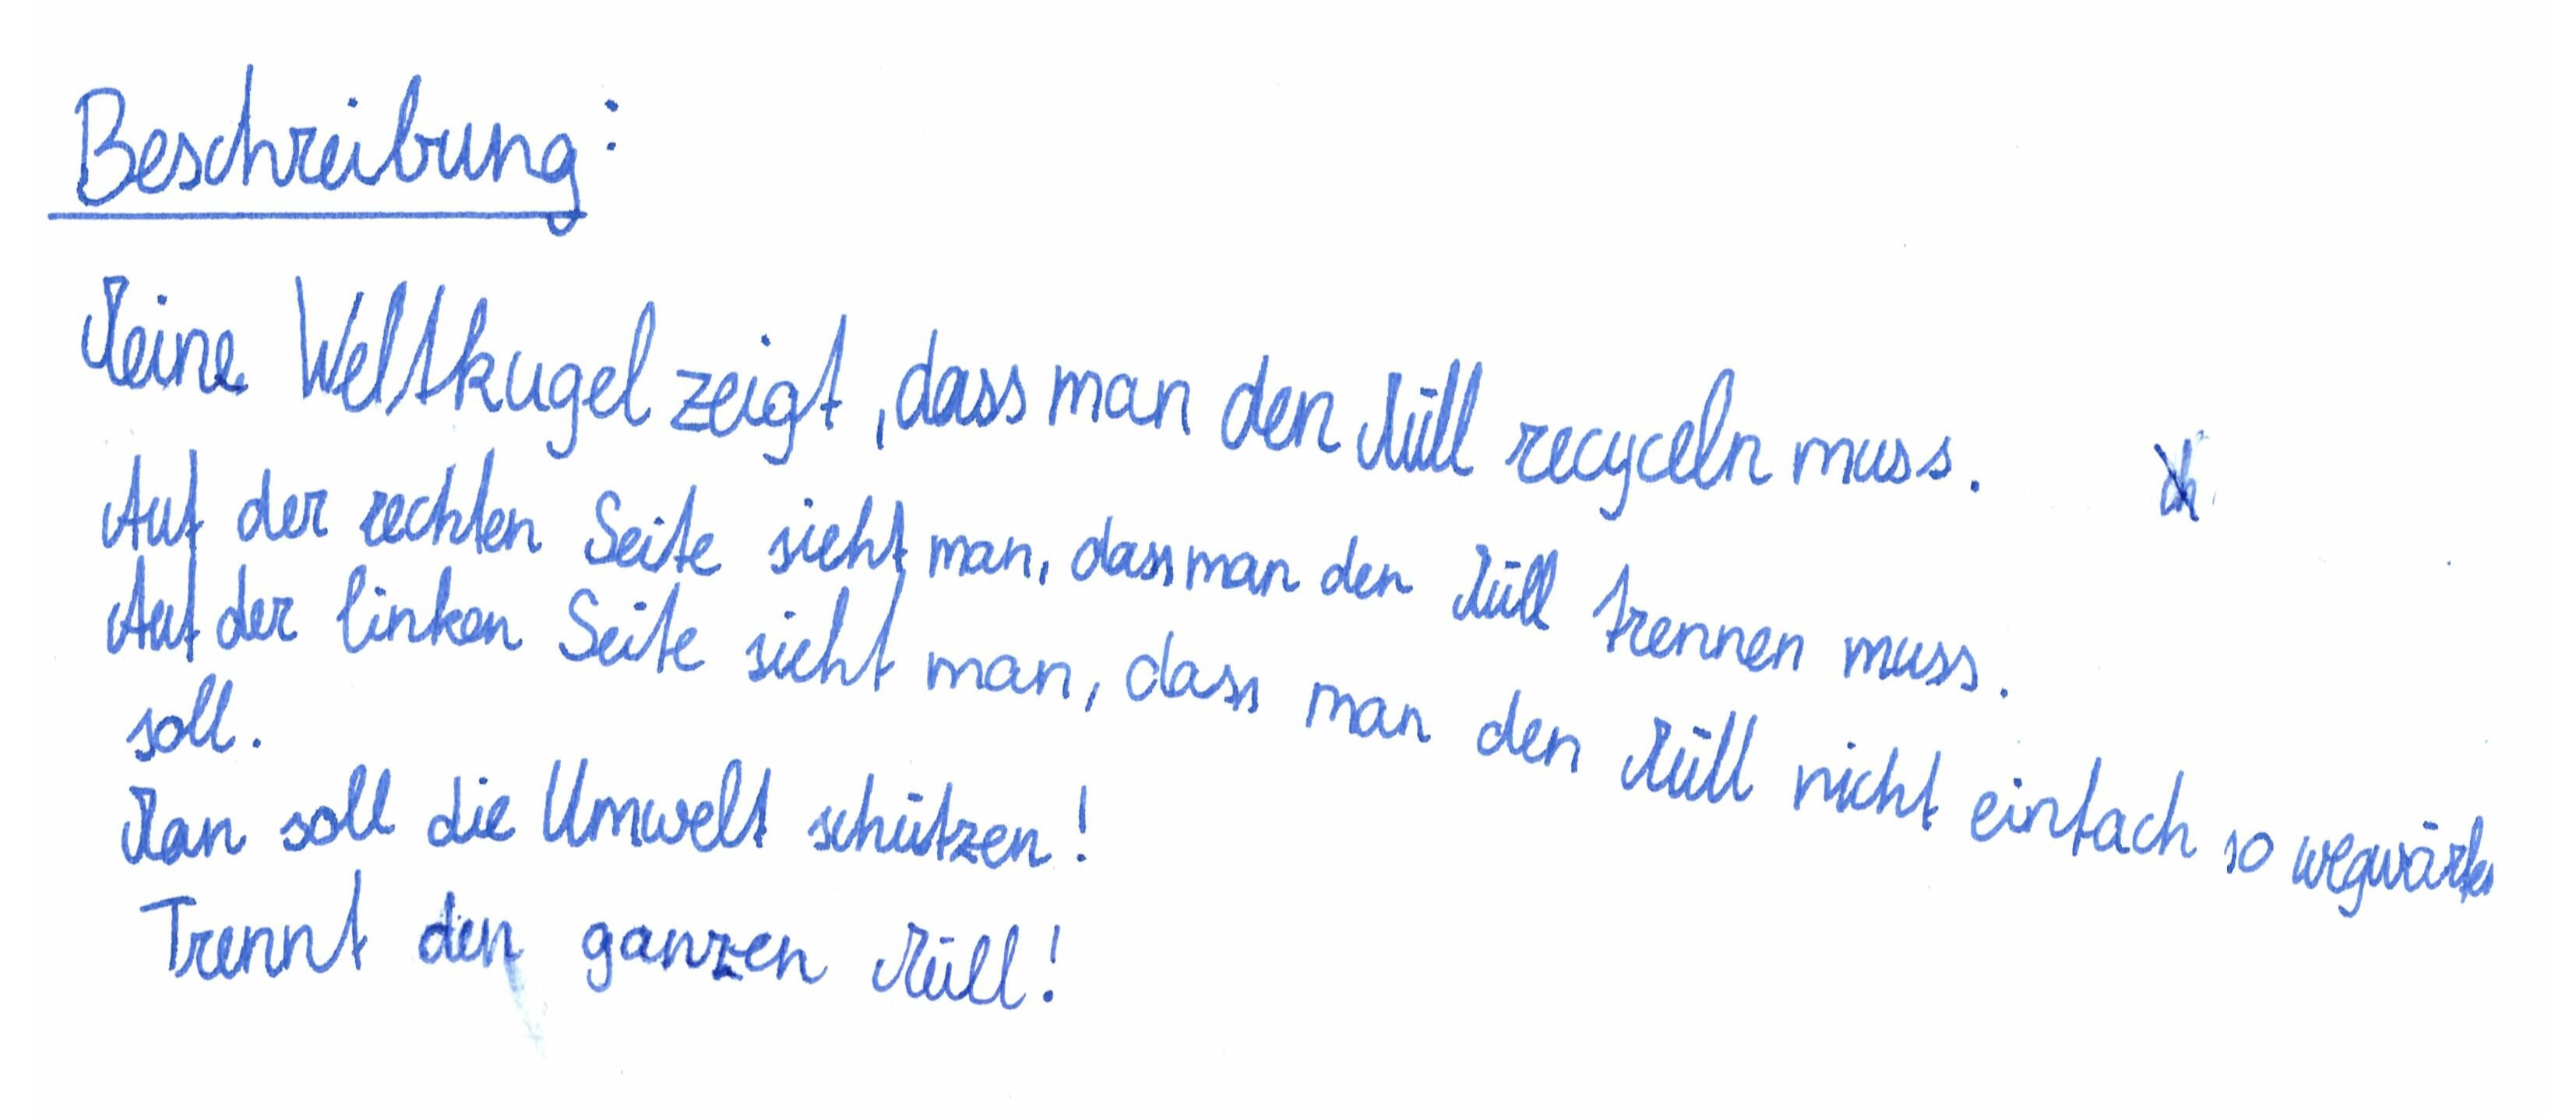 Beschreibung:
Meine Weltkugel zeigt, dass man den Müll recyceln muss.
Auf der rechten Seite sieht man, dass man den Müll trennen muss.
Auf der linken Seite sieht man, dass man den Müll nicht einfach so wegwärfen
soll.
Man soll die Umwelt schützen!
Trennt den ganzen Müll!